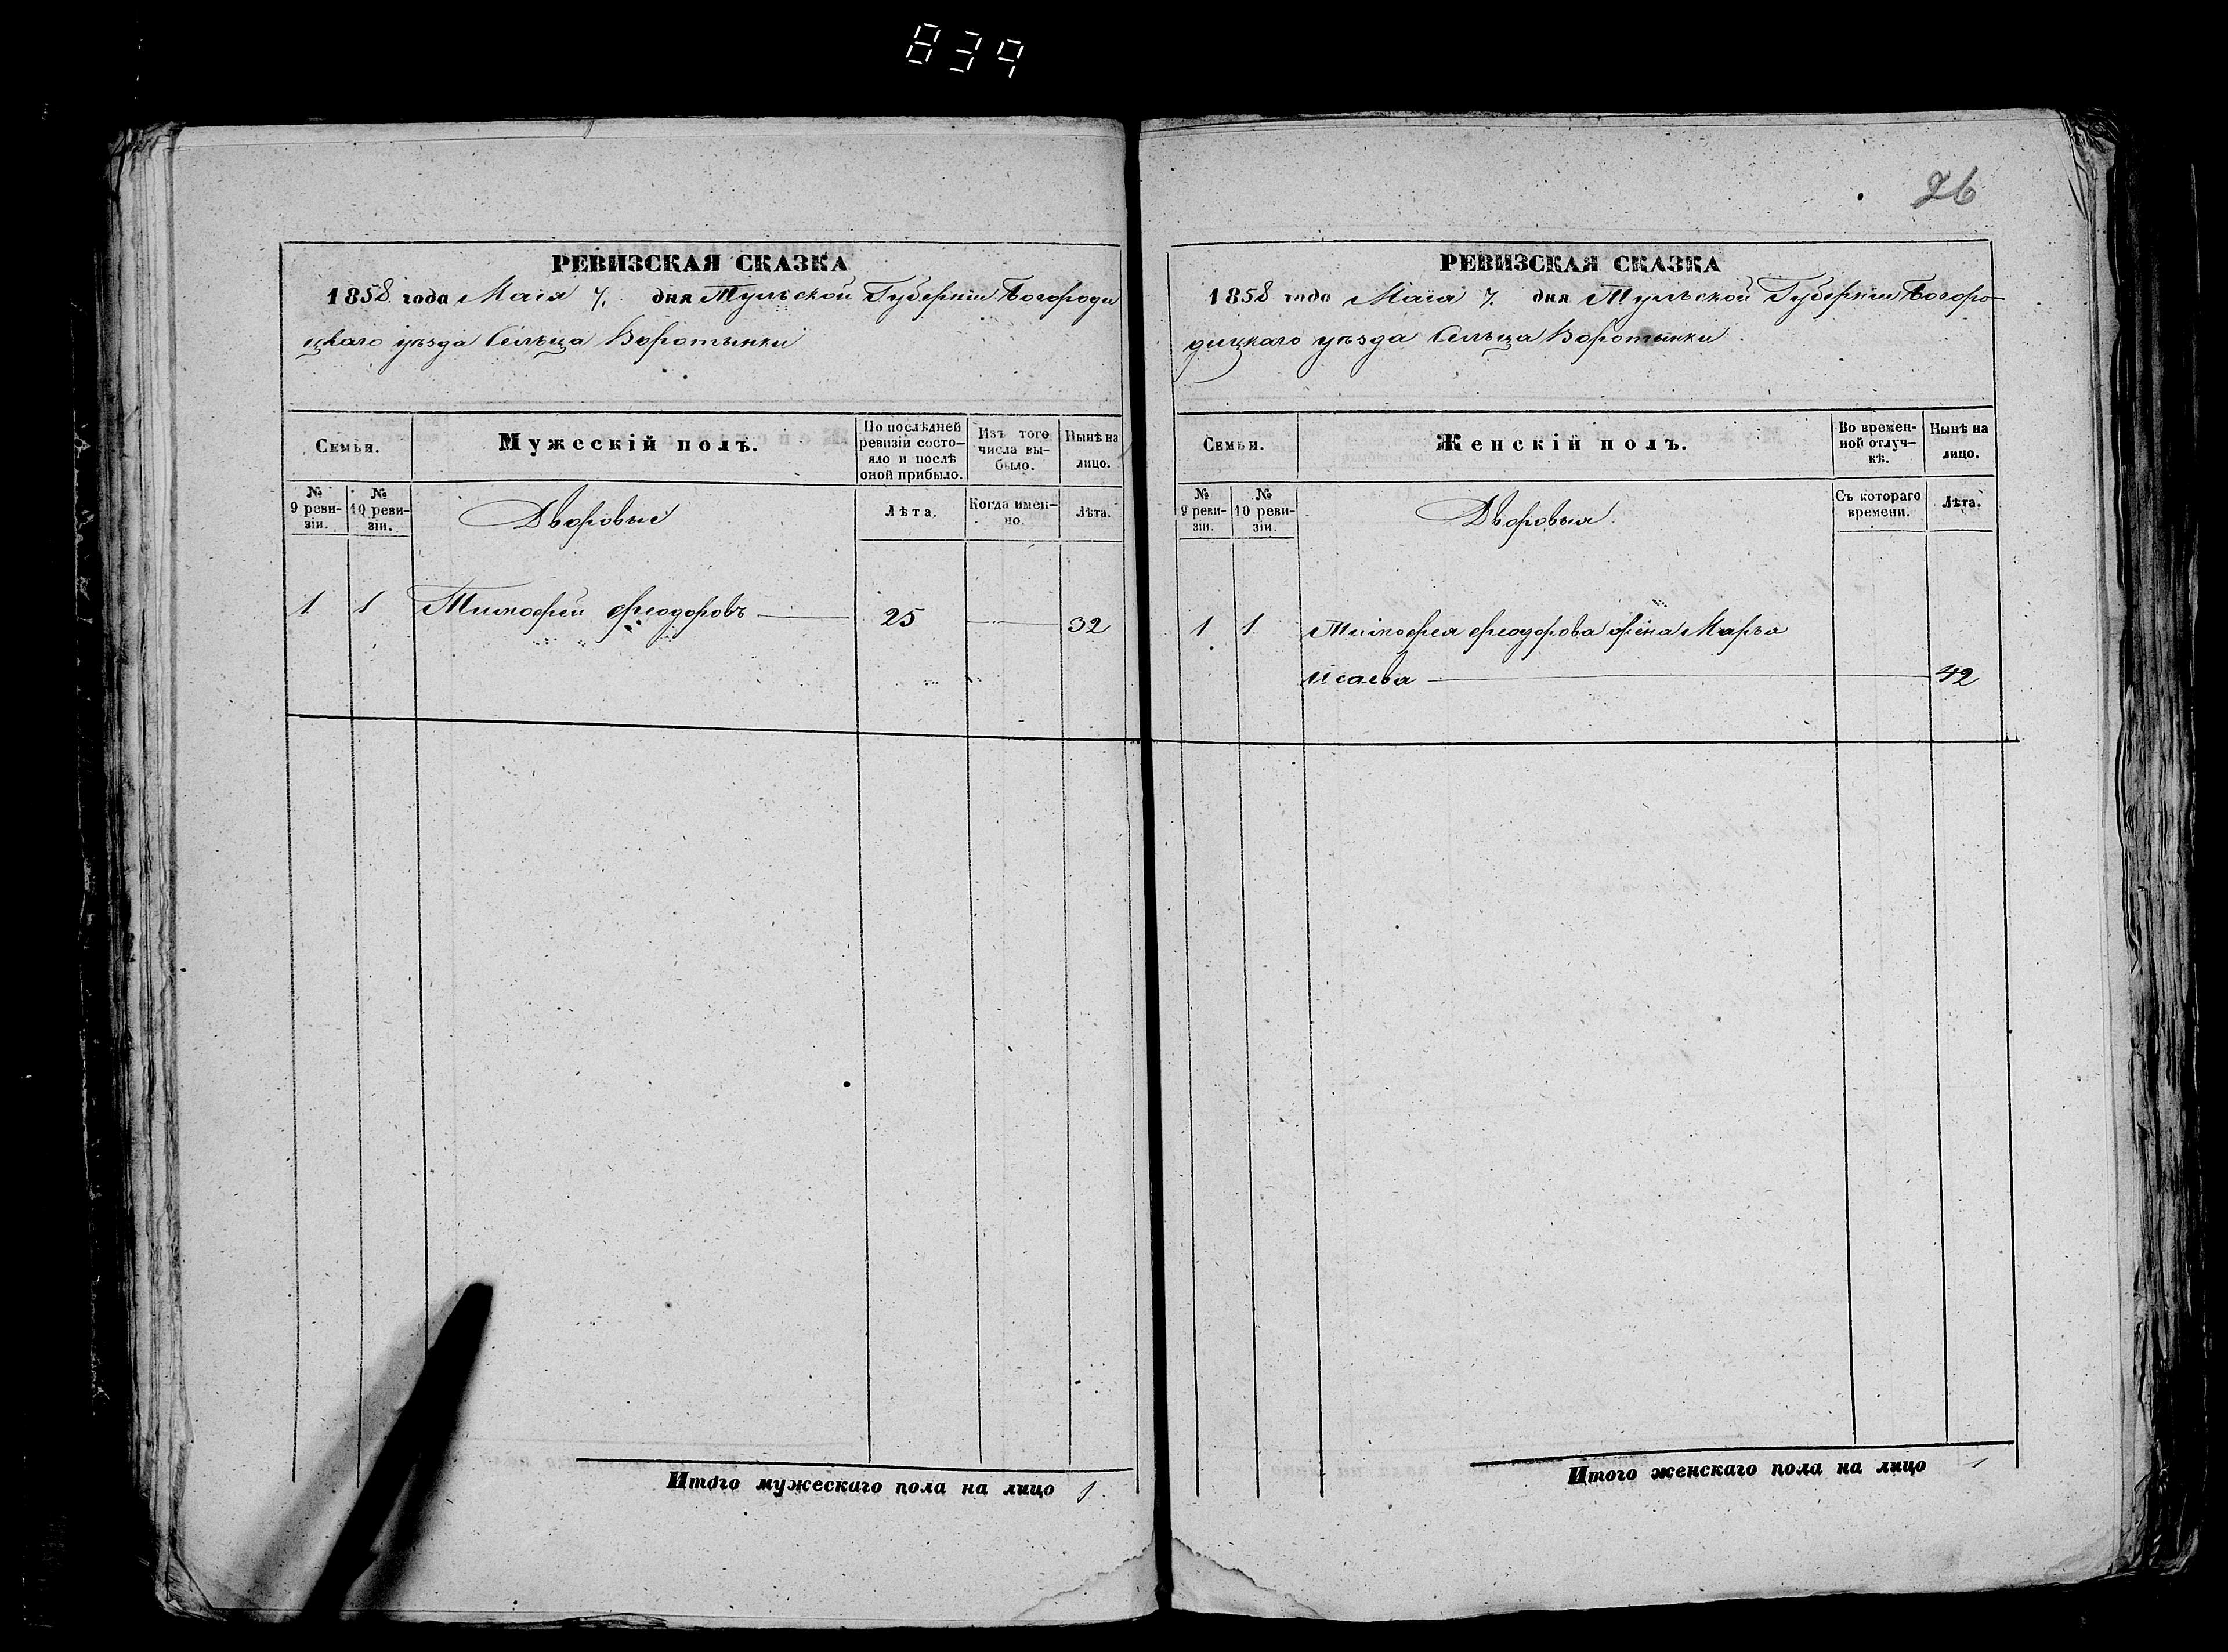 839
26
РЕВИЗСКАЯ СКАЗКА
1858 года Маія 7. дня Тульской Губерніи Богороди
цкаго уѣзда Сельца Воротынки
Семьи.
Мужескій полъ.
По послѣдней ревизіи состо-
яло и послѣ
оной прибыло.
Изъ того
числа вы-
было.
Нынѣ на
лицо.
№
9 реви-
зіи.
№
10 реви-
зіи.
Дворовые
Лѣта.
Когда имен-
но.
Лѣта.
1 1 Тимофей Феодоровъ 25 32
Итого мужескаго пола на лицо 1.
РЕВИЗСКАЯ СКАЗКА
1858 года Маія 7. дня Тульской Губерніи Богоро-
дицкаго уѣзда Сельца Воротынки.
Семьи.
Женскій полъ.
Во времен-
ной отлуч-
кѣ.
Нынѣ на
лицо.
№
9 реви-
зіи.
№
10 реви-
зіи.
Дворовыя.
Съ котораго
времени.
Лѣта.
1 1 Тимофея Феодорова жена Марья
Исаева 42
Итого женскаго пола на лицо 1